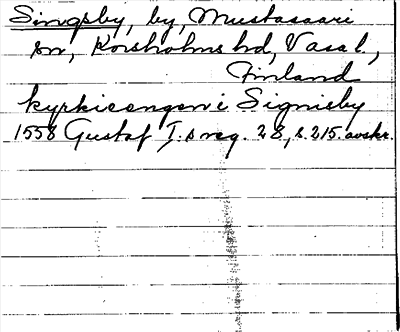 Singsby, by, Mustasaari
sn, Korsholms hd, Vasa l.,
Finland
kyrkioengen i Signisby
1558 Gustaf I:s reg. 28, s. 215. avskr.